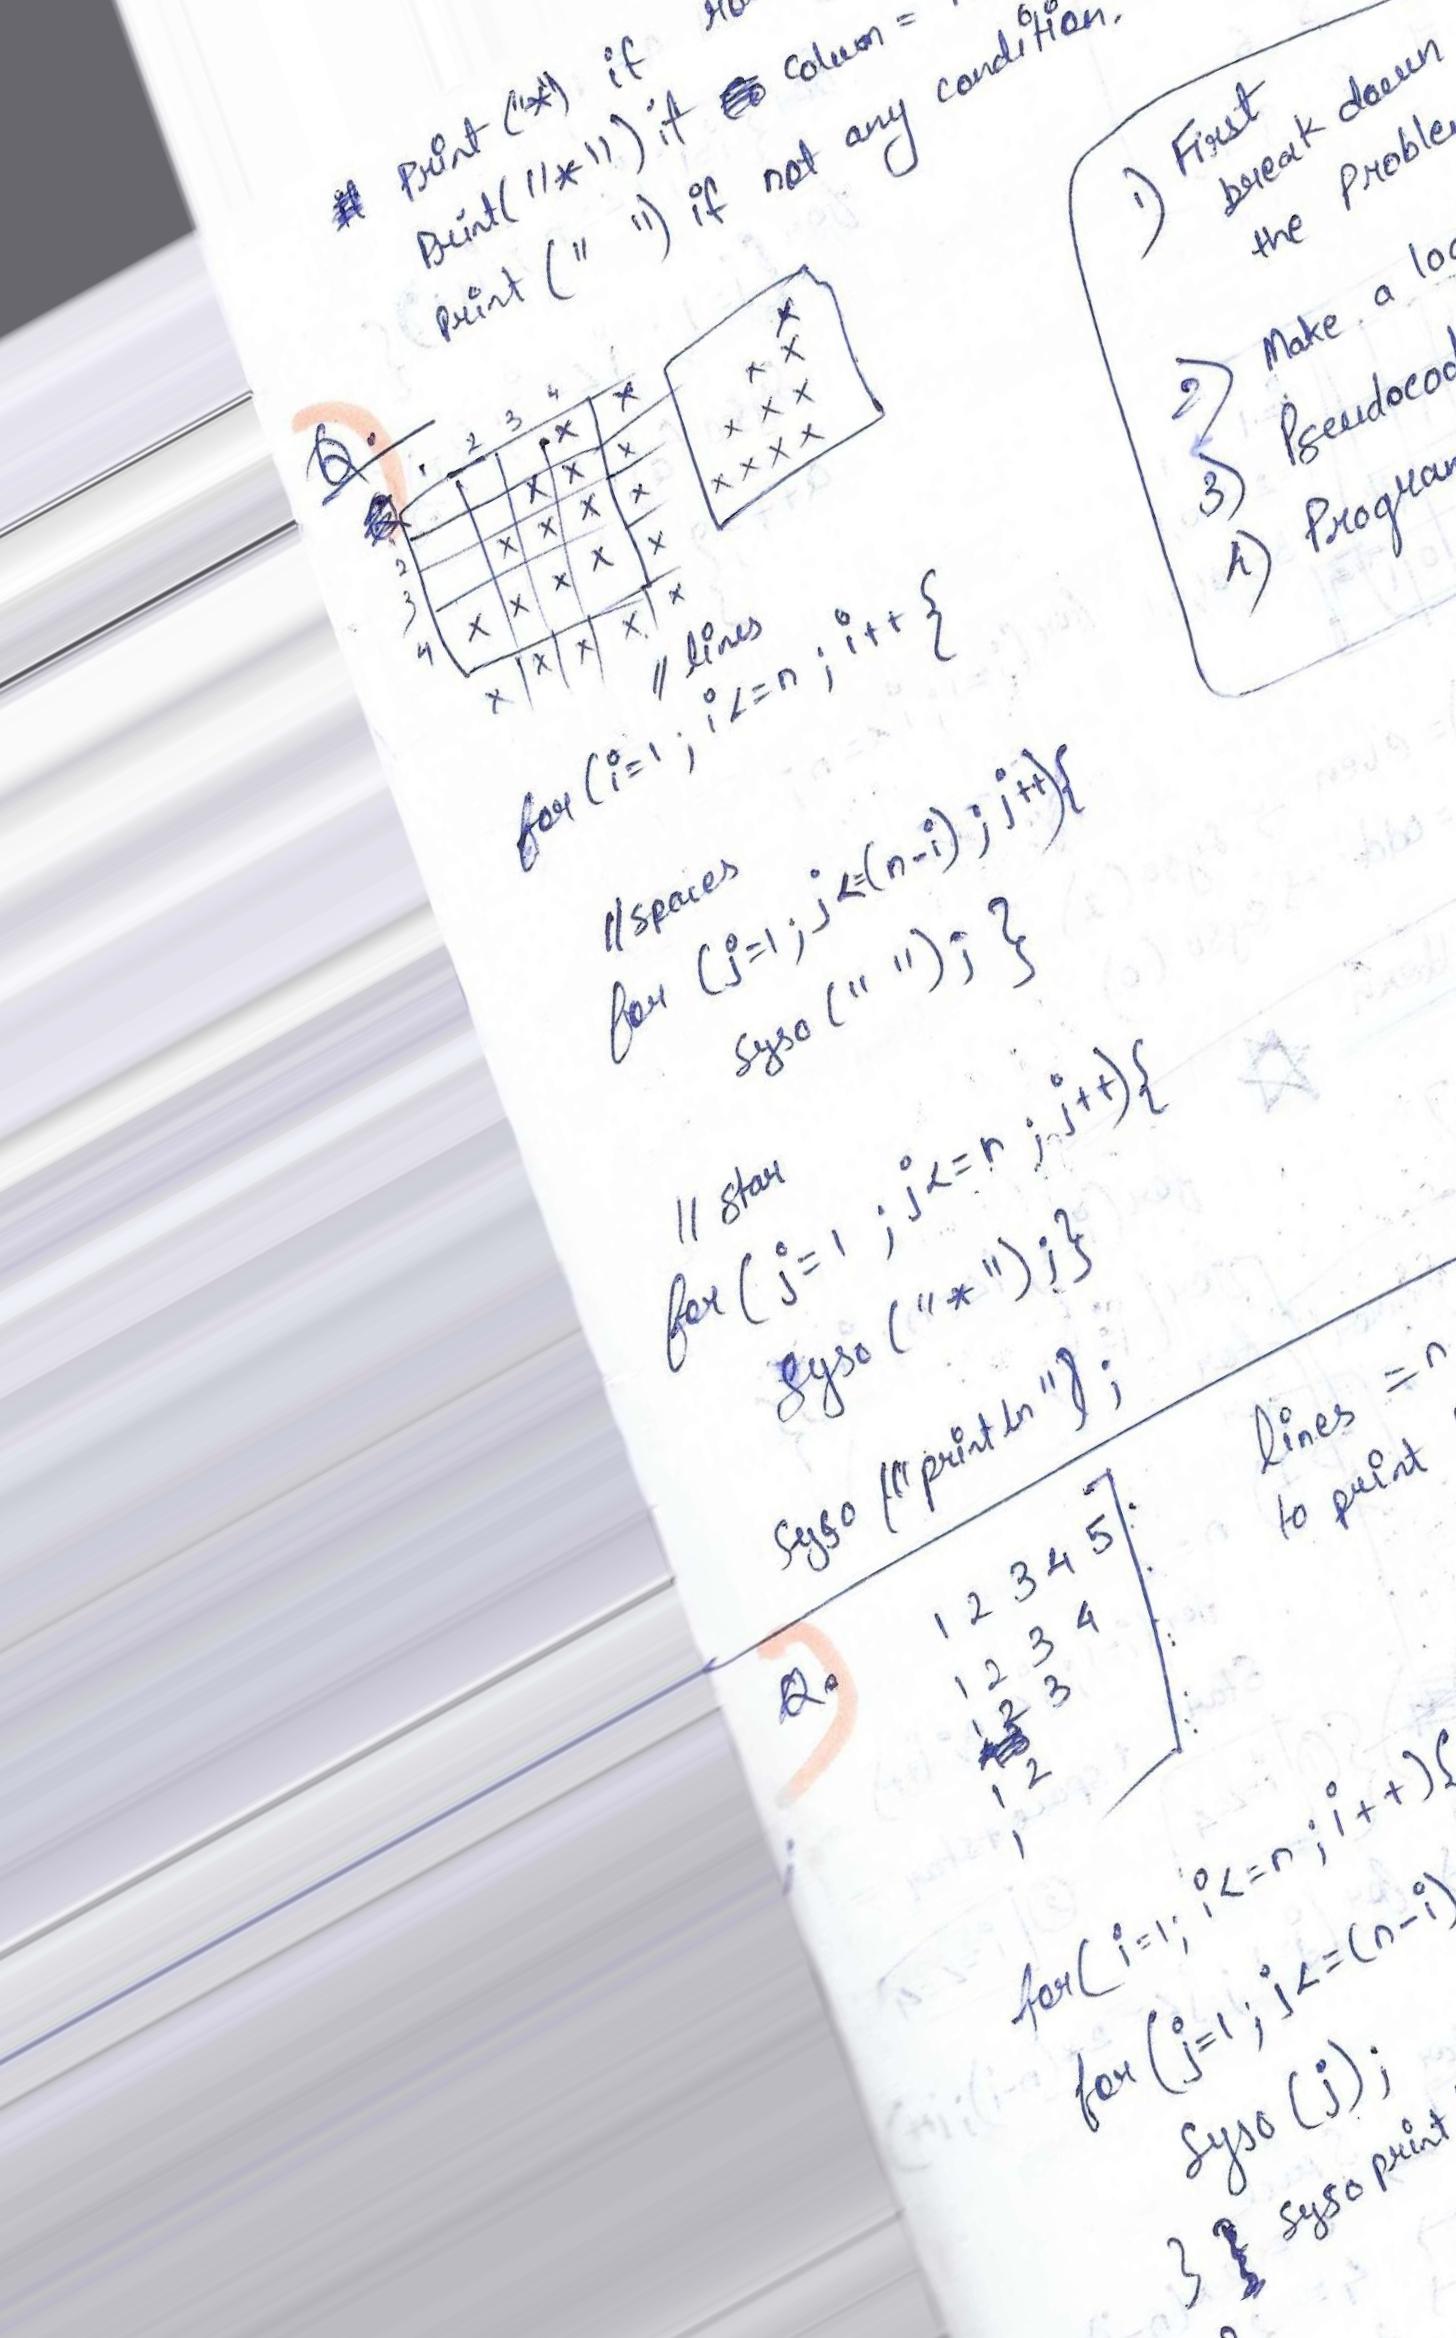 # Print ("*") if
Print("*") if column =
print (" ") if not any condition.
1) First
break down
the
2) Make a
3)
4)
Q.
2 3 4
2
3
4
// lines
for (i=1 ; i<=n ; i++ {
//spaces
for (j=1 ; j<=(n-i) ; j++){
Syso (" "); }
// star
for (j=1 ; j<=n ; j++){
Syso ("*");}
Syso ("println");
Q.
1 2 3 4 5
1 2 3 4
1 2 3
1 2
1
lines = n
to print
for( i=1; i<=n ; i++){
for (j=1 ; j<=(n-i)
Syso (j);
} } syso print